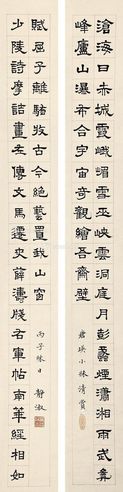 滄海日赤城霞峨嵋雪巫峽雲洞庭月彭蠡煙瀟湘雨武彝
峰廬山瀑布合宇宙奇觀繪吾齋壁
君瑛小妹清賞
少陵詩摩詰畫左傳文馬遷史薛濤牋右軍帖南華經相如
賦屈子離騷收古今絕藝置我山窗
丙子秋日 靜淑